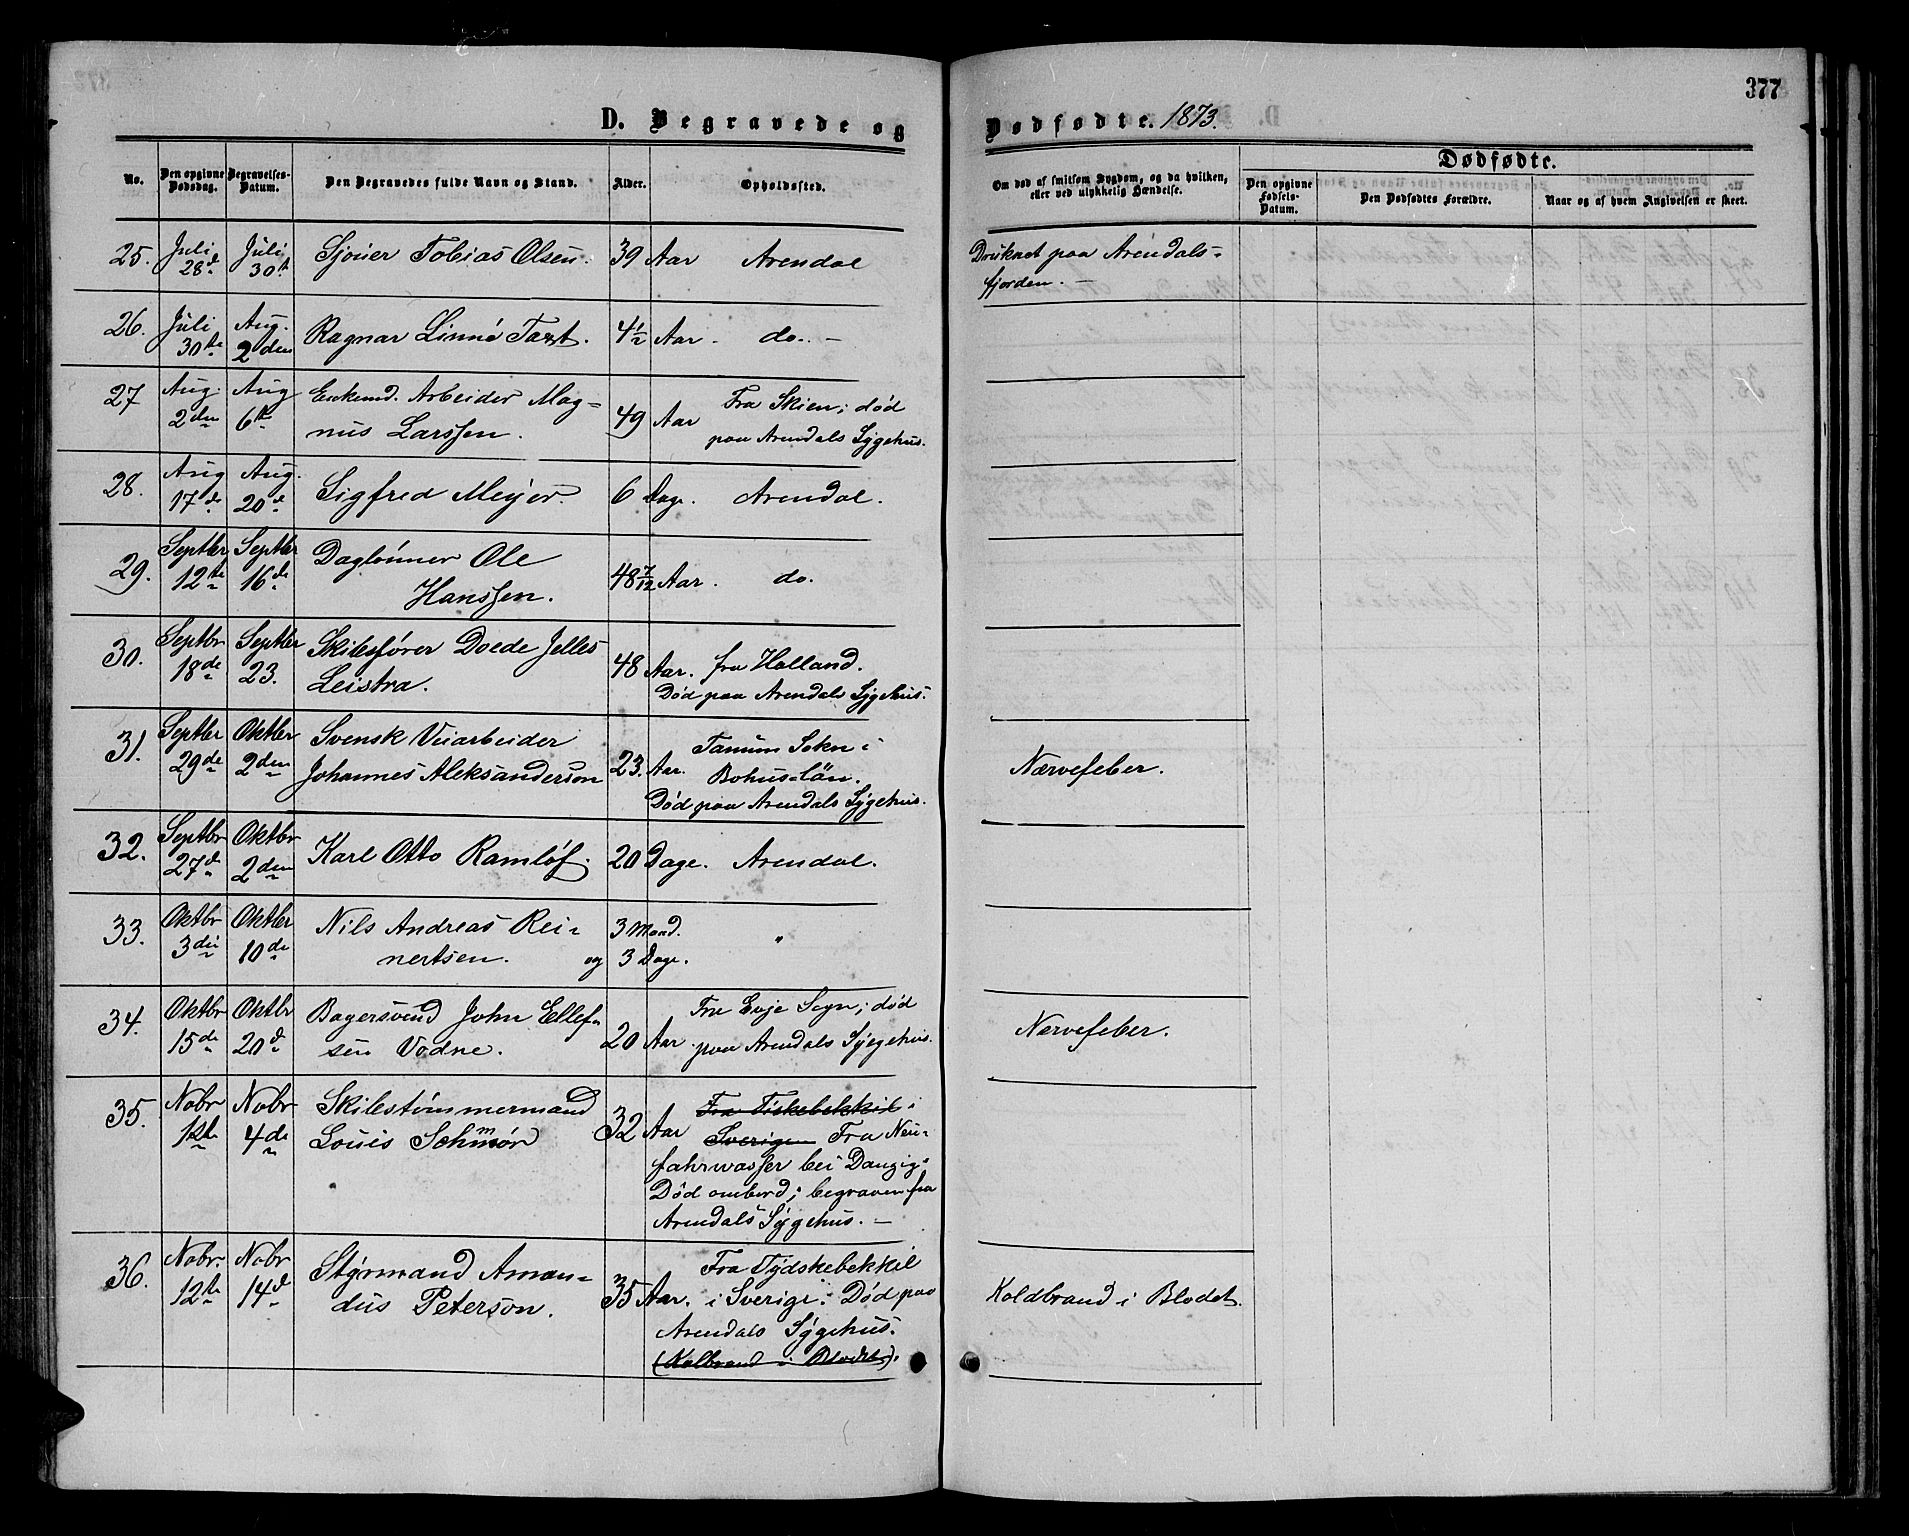 377
D. Begravede og Dødfødte. 1873.
No. | Den opgivne Dødsdag. | Begravelses-Datum. | Den Begravedes fulde Navn og Stand. | Alder. | Opholdssted. | Om død af smitsom Sygdom, og da hvilken, eller ved ulykkelig Hændelse. | Dødfødte. | Den opgivne Fødsels-Datum. | Den Dødfødtes Forældre. | Naar og af hvem Angivelsen er skeet.
25. Juli 28d Juli 30t Sjouer Tobias Olsen. 39 Aar Arendal Druknet paa Arendals-
fjorden. —
26. Juli 30te Aug. 2den Ragnar Linné Taxt. 4½ Aar. do. —
27 Aug. 2den Aug 6te Enkemd. Arbeider Mag-
nus Larssen. 49 Aar Fra Skien; død
paa Arendals Sygehus.
28. Aug 17de Aug. 20de Sigfred Meyer. 6 Dage. Arendal.
29. Septbr 12te Septbr 16de Daglønner Ole
Hanssen. 48 7/12 Aar. do.
30. Septbr 18de Septbr 23. Skibsfører Doede Jelles
Leistra. 48 Aar. fra Holland.
Død paa Arendals Sygehus.
31. Septbr 29de Oktbr 2den Svensk Veiarbeider
Johannes Aleksanderson 23. Aar. Tanum Sokn i
Bohus-län.
Død paa Arendals Sygehus. Nervefeber.
32. Septbr 27d Oktbr 2den Karl Otto Ramløf. 20 Dage. Arendal.
33. Oktbr 3die Oktbr 10de Nils Andreas Rei-
nertsen. 3 Maand.
og 3 Dage. "
34. Oktbr 15de Oktbr 20d Bagersvend John Ellef-
sen Vodne. 20 Aar. Fra Evje Sogn; død
paa Arendals Sygehus. Nervefeber.
35. Nobr 1ste Nobr 4de Skibstømmermand
Louis Schmør 32 Aar Fra Tiskebekkil i
Sverige Fra Neu-
fahrwasser bei Danzig.
Død ombord; begraven fra
Arendals Sygehus. —
36. Nobr. 12te Nobr 14d Styrmand Aman-
dus Peterson. 35 Aar. Fra Tydskebekkil
i Sverige. Død paa
Arendals Sygehus.
(Kolbrand i Blodet). Koldbrand i Blodet.